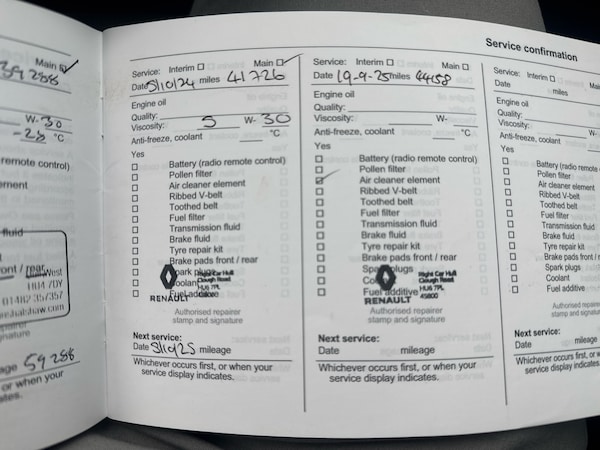 Service confirmation
Main
39288
W-30
-28 °C
remote control)
ement
fluid
ont / rear
West
HU4 7DY
01482 357357
59288
or when your
ates.
Service: Interim Main
Date 5/10/24 miles 41726
Engine oil
Quality:
Viscosity: 5 W-30
Anti-freeze, coolant °C
Yes
Battery (radio remote control)
Pollen filter
Air cleaner element
Ribbed V-belt
Toothed belt
Fuel filter
Transmission fluid
Brake fluid
Tyre repair kit
Brake pads front / rear
Spark plugs
Coolant
Fuel additive
RENAULT
Right Car Hull
Clough Road
HU6 7PL
Authorised repairer
stamp and signature
Next service:
Date 5/10/25 mileage
Whichever occurs first, or when your
service display indicates.
Service: Interim Main
Date 19-9-25 miles 44158
Engine oil
Quality:
Viscosity: W-
Anti-freeze, coolant °C
Yes
Battery (radio remote control)
Pollen filter
Air cleaner element
Ribbed V-belt
Toothed belt
Fuel filter
Transmission fluid
Brake fluid
Tyre repair kit
Brake pads front / rear
Spark plugs
Fuel additive
RENAULT
Right Car Hull
Clough Road
HU6 7PL
45800
Authorised repairer
stamp and signature
Next service:
Date mileage
Whichever occurs first, or when your
service display indicates.
Service: Interim Main
Date miles
Engine oil
Quality:
Viscosity: W-
Anti-freeze, coolant
Yes
Battery (radio remote c
Pollen filter
Air cleaner element
Ribbed V-belt
Toothed belt
Fuel filter
Transmission fluid
Brake fluid
Tyre repair kit
Brake pads front /
Spark plugs
Coolant
Fuel additive
Authorised
stamp and
Next service:
Date mileage
Whichever occurs first, or
service display indicates.